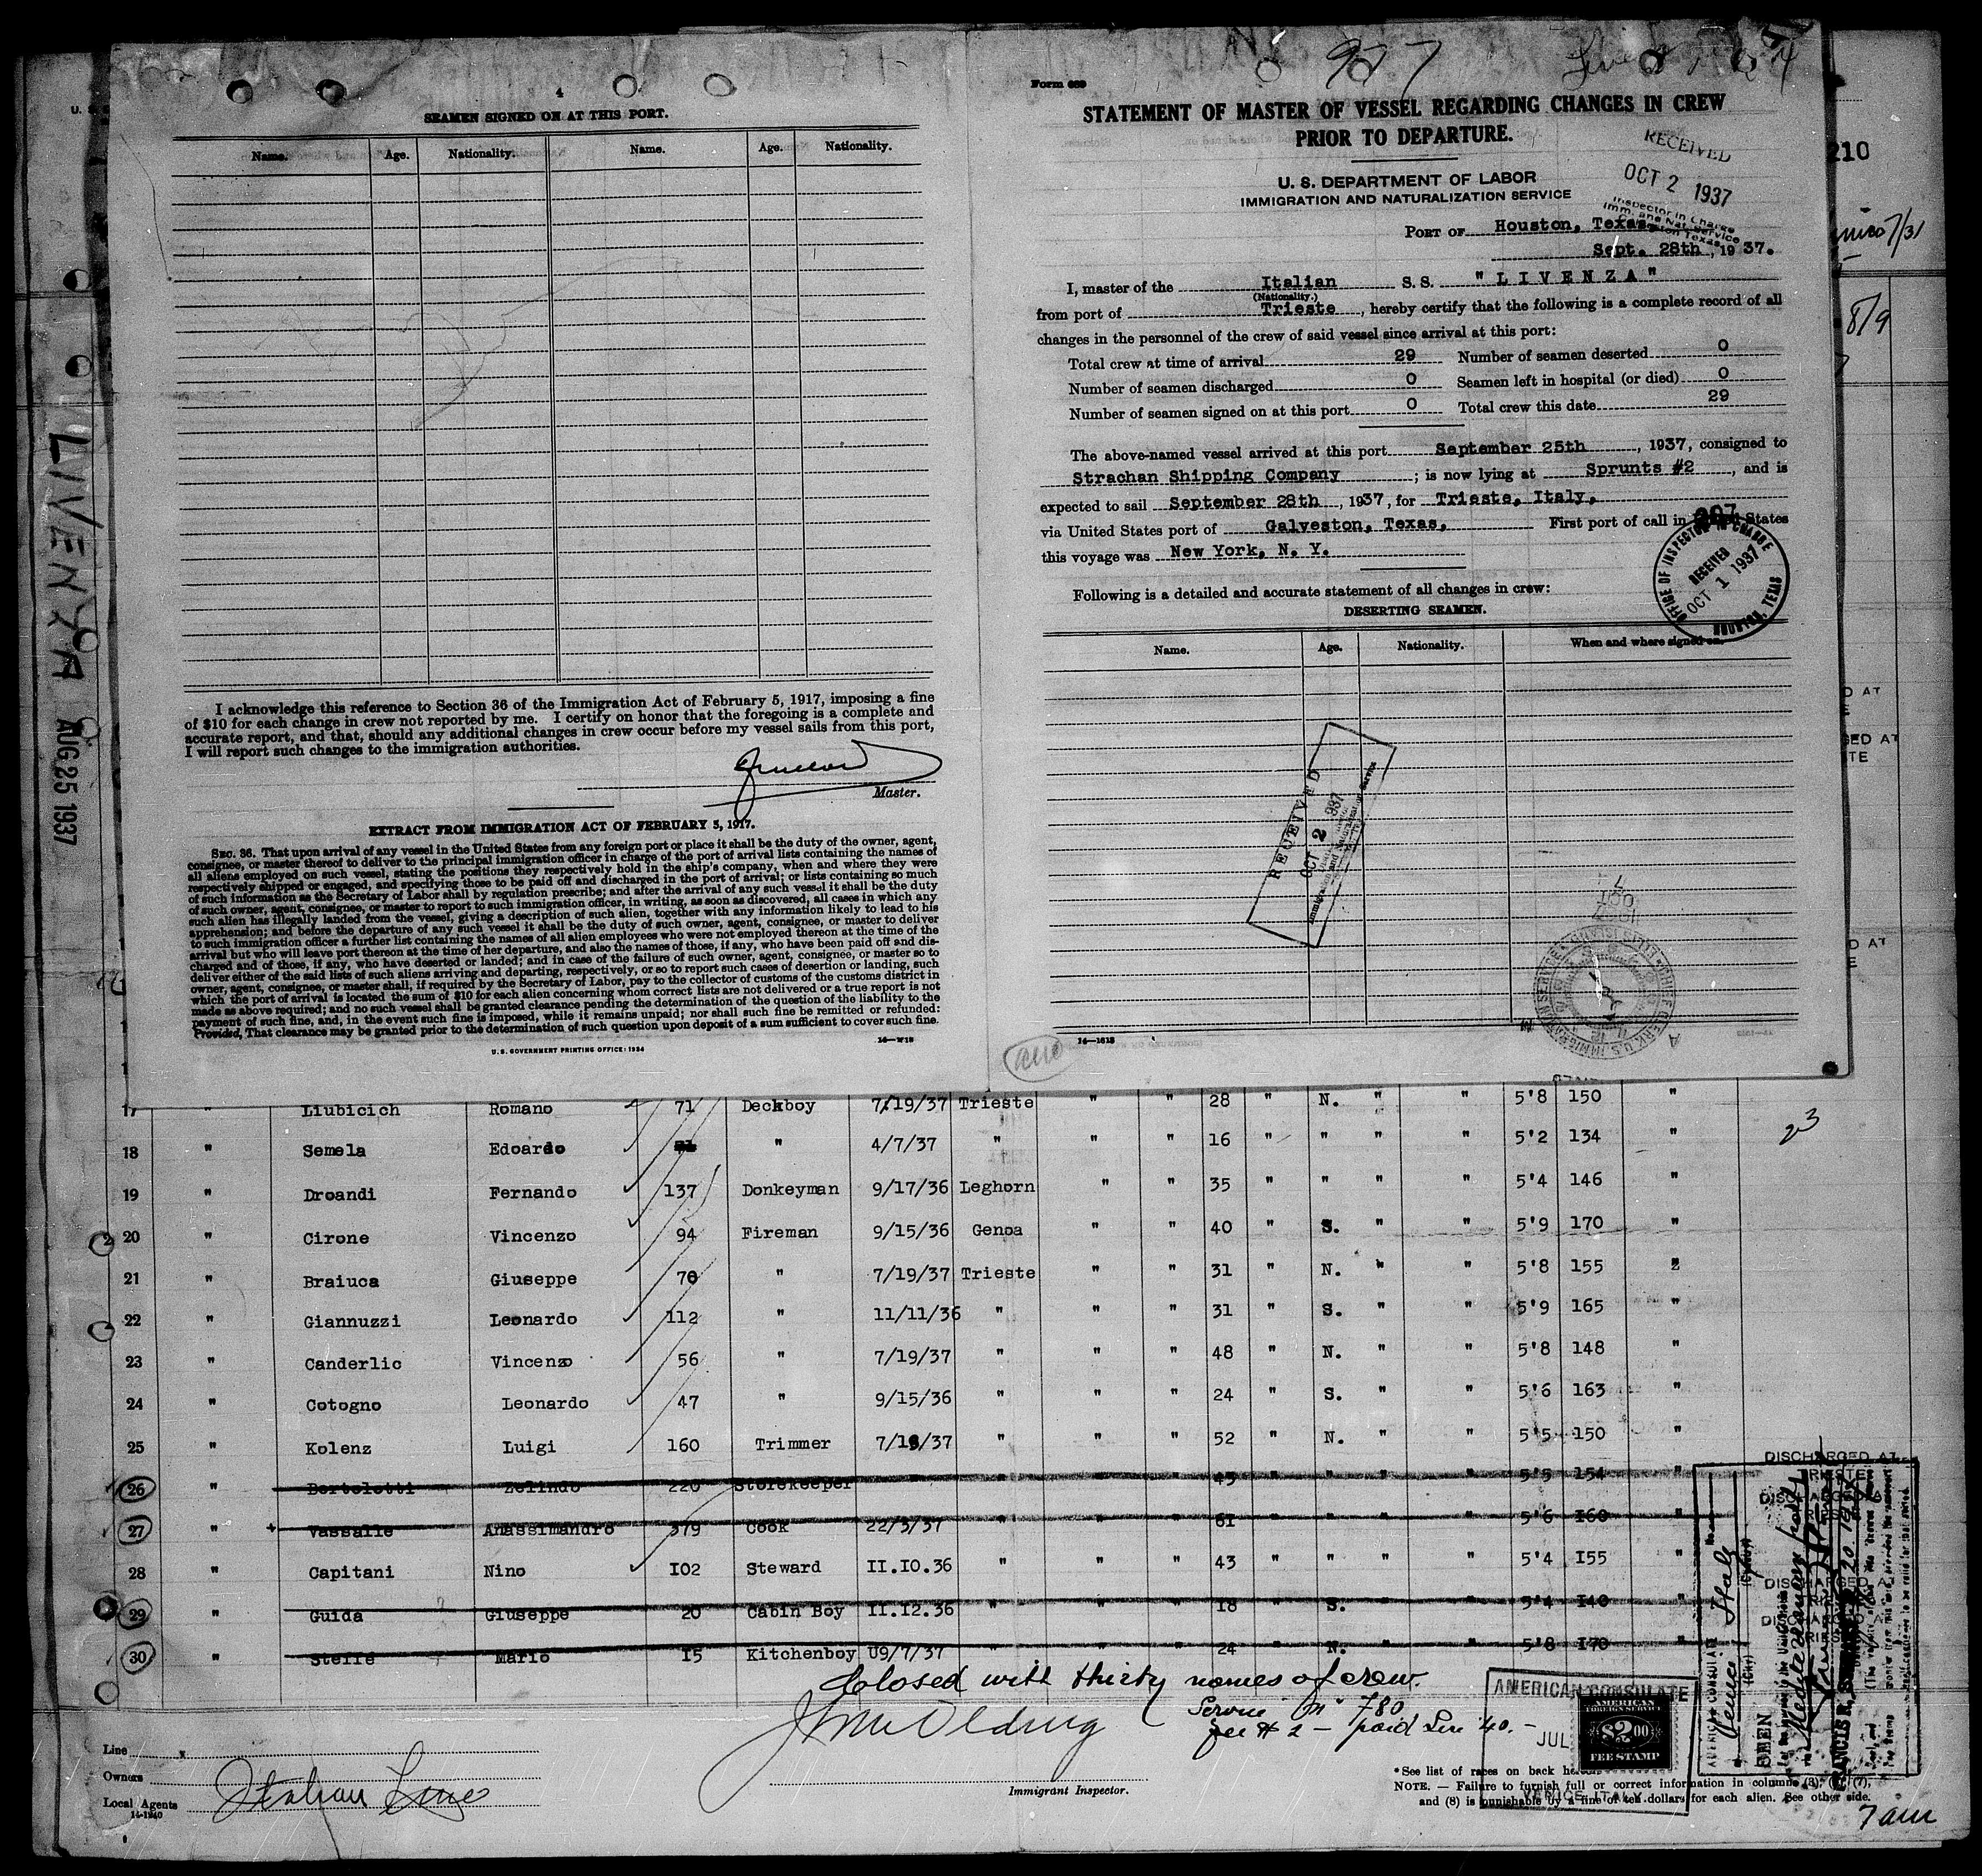 4
SEAMEN SIGNED ON AT THIS PORT.
Name. Age. Nationality. Name. Age. Nationality.
I acknowledge this reference to Section 36 of the Immigration Act of February 5, 1917, imposing a fine
of $10 for each change in crew not reported by me. I certify on honor that the foregoing is a complete and
accurate report, and that, should any additional changes in crew occur before my vessel sails from this port,
I will report such changes to the immigration authorities.
Master.
EXTRACT FROM IMMIGRATION ACT OF FEBRUARY 5, 1917.
SEC. 36. That upon arrival of any vessel in the United States from any foreign port or place it shall be the duty of the owner, agent,
consignee, or master thereof to deliver to the principal immigration officer in charge of the port of arrival lists containing the names of
all aliens employed on such vessel, stating the positions they respectively hold in the ship's company, when and where they were
respectively shipped or engaged, and specifying those to be paid off and discharged in the port of arrival; or lists containing so much
of such information as the Secretary of Labor shall by regulation prescribe; and after the arrival of any such vessel it shall be the duty
of such owner, agent, consignee, or master to report to such immigration officer, in writing, as soon as discovered, all cases in which any
such alien has illegally landed from the vessel, giving a description of such alien, together with any information likely to lead to his
apprehension; and before the departure of any such vessel it shall be the duty of such owner, agent, consignee, or master to deliver
to such immigration officer a further list containing the names of all alien employees who were not employed thereon at the time of the
arrival but who will leave port thereon at the time of her departure, and also the names of those, if any, who have been paid off and dis-
charged and of those, if any, who have deserted or landed; and in case of the failure of such owner, agent, consignee, or master so to
deliver either of the said lists of such aliens arriving and departing, respectively, or so to report such cases of desertion or landing, such
owner, agent, consignee, or master shall, if required by the Secretary of Labor, pay to the collector of customs of the customs district in
which the port of arrival is located the sum of $10 for each alien concerning whom correct lists are not delivered or a true report is not
made as above required; and no such vessel shall be granted clearance pending the determination of the question of the liability to the
payment of such fine, and, in the event such fine is imposed, while it remains unpaid; nor shall such fine be remitted or refunded:
Provided, That clearance may be granted prior to the determination of such question upon deposit of a sum sufficient to cover such fine.
U. S. GOVERNMENT PRINTING OFFICE: 1934
Form 689
927
STATEMENT OF MASTER OF VESSEL REGARDING CHANGES IN CREW
PRIOR TO DEPARTURE.
U. S. DEPARTMENT OF LABOR
IMMIGRATION AND NATURALIZATION SERVICE
RECEIVED
OCT 2 1937
Inspector in Charge
Imm. and Nat. Service
PORT OF Houston, Texas
Sept. 28th, 1937.
I, master of the Italian S.S. "LIVENZA"
(Nationality.)
from port of Trieste, hereby certify that the following is a complete record of all
changes in the personnel of the crew of said vessel since arrival at this port:
Total crew at time of arrival 29 Number of seamen deserted 0
Number of seamen discharged 0 Seamen left in hospital (or died) 0
Number of seamen signed on at this port 0 Total crew this date 29
The above-named vessel arrived at this port September 25th, 1937, consigned to
Strachan Shipping Company; is now lying at Sprunts #2, and is
expected to sail September 28th, 1937, for Trieste, Italy,
via United States port of Galveston, Texas, First port of call in United States
this voyage was New York, N. Y.
OFFICE OF INSPECTOR IN CHARGE
RECEIVED
OCT 1 1937
HOUSTON, TEXAS
Following is a detailed and accurate statement of all changes in crew:
DESERTING SEAMEN.
Name. Age. Nationality. When and where signed on.
RECEIVED
OCT 2 1937
Immigration and Naturalization Service
14—1618
210
7/31
8/9
LIVENZA AUG 25 1937
17 " Liubicich Romano 71 Deckboy 7/19/37 Trieste " " 28 " N. " " 5'8 150 "
23
18 " Semela Edoardo " 4/7/37 " " " 16 " " " " 5'2 134 "
19 " Droandi Fernando 137 Donkeyman 9/17/36 Leghorn " " 35 " " " " 5'4 146 "
20 " Cirone Vincenzo 94 Fireman 9/15/36 Genoa " " 40 " S. " " 5'9 170 "
21 " Braiuca Giuseppe 70 " 7/19/37 Trieste " " 31 " N. " " 5'8 155 "
22 " Giannuzzi Leonardo 112 " 11/11/36 " " " 31 " S. " " 5'9 165 "
23 " Canderlic Vincenzo 56 " 7/19/37 " " " 48 " N. " " 5'8 148 "
24 " Cotogno Leonardo 47 " 9/15/36 " " " 24 " S. " " 5'6 163 "
25 " Kolenz Luigi 160 Trimmer 7/19/37 " " " 52 " N. " " 5'5 150 "
26 " Bortolotti Zelindo 220 Storekeeper " " " 45 " " " " 5'5 154 "
27 " Vassalle Anassimandro 379 Cook 22/3/37 " " " 61 " " " " 5'6 I60 "
28 " Capitani Nino I02 Steward II.I0.36 " " " 43 " " " " 5'4 I55 "
29 " Guida Giuseppe 20 Cabin Boy II.I2.36 " " " 18 " S. " " 5'4 I40 "
30 " Steffe Mario I5 Kitchenboy U9/7/37 " " " 24 " N. " " 5'8 I70 "
DISCHARGED AT
Closed with thirty names of crew.
Service No 780
fee # 2 — paid Lire 40.-
Line
Owners
Local Agents Italian Line
14-1240
Immigrant Inspector.
AMERICAN CONSULATE
JUL
AMERICAN
FOREIGN SERVICE
$2.00
FEE STAMP
VENICE, ITALY
AMERICAN CONSULATE
Venice Italy
(City) (Country)
SEEN
*See list of races on back he
NOTE. — Failure to furnish full or correct information in columns (3), (6), (7),
and (8) is punishable by a fine of ten dollars for each alien. See other side.
7 am